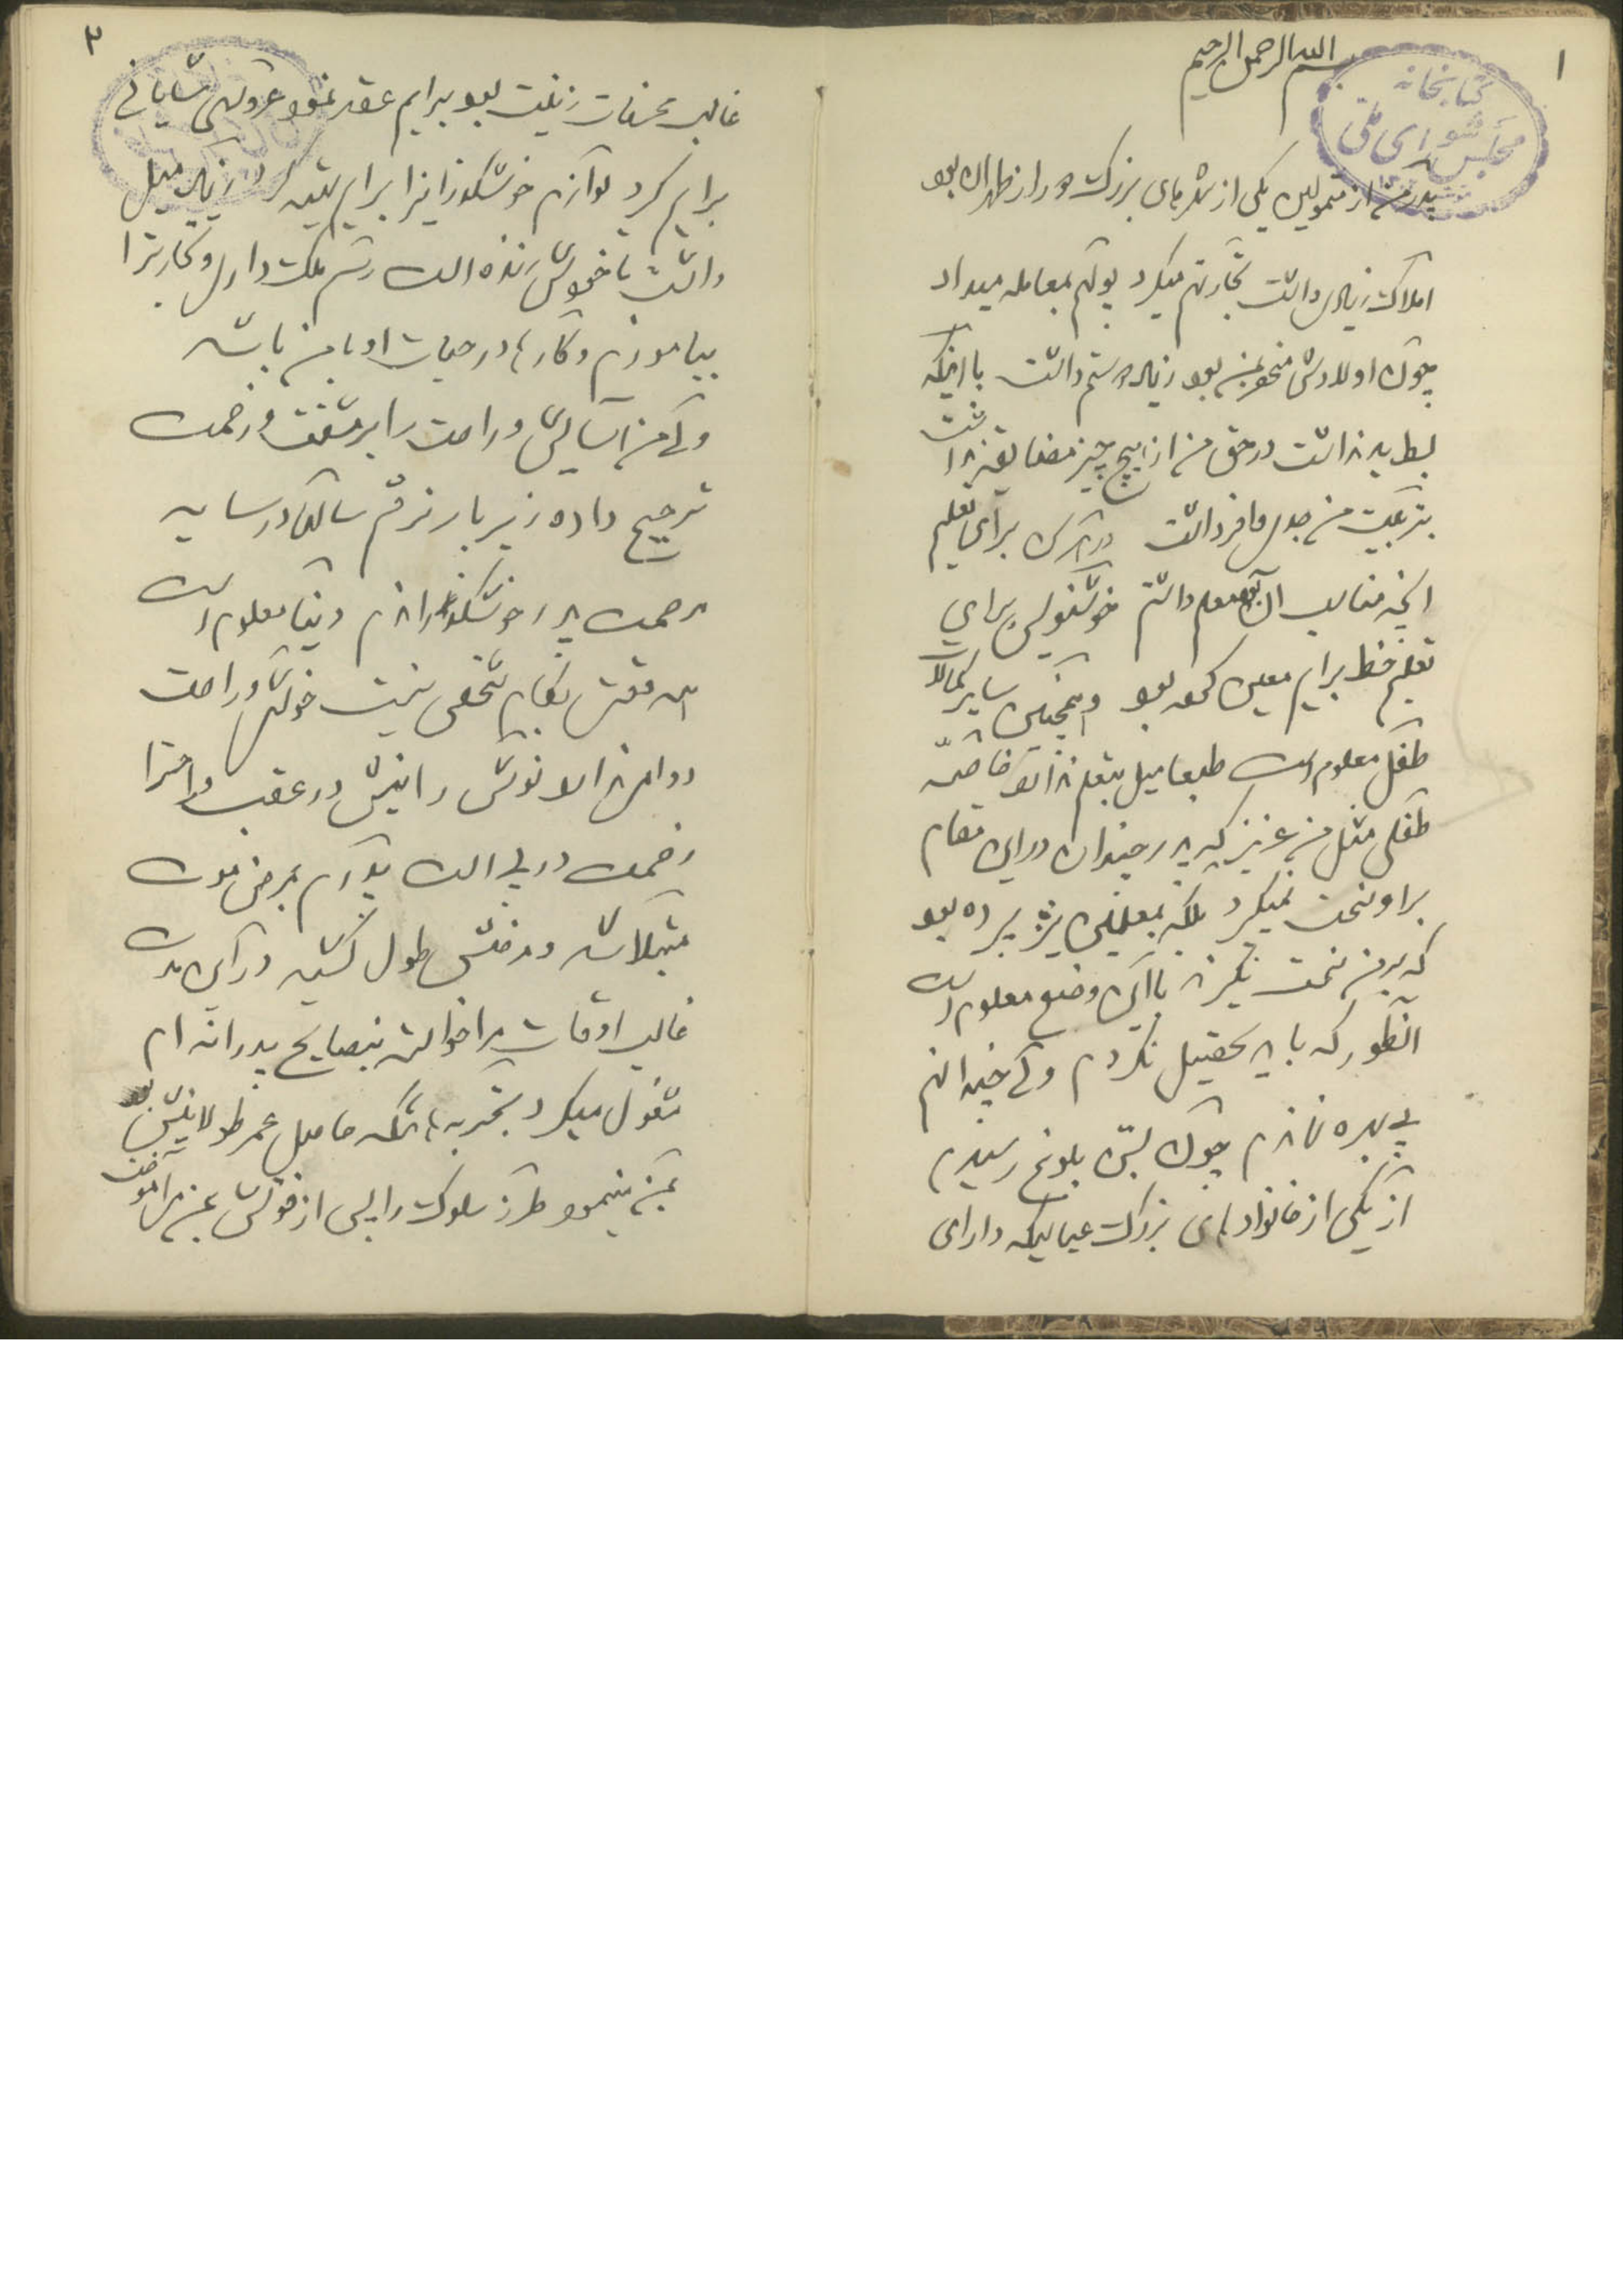 ۱
بسم الله الرحمن الرحیم
کتابخانه
مجلس شورای ملی
پدر من از متمولین یکی از شهرهای بزرگ دور از طهران بود
املاک زیاد داشت تجارتم میکرد پولم بمعامله میداد
چون اولادش منحصر بمن بود زیاد دوستم داشت با اینکه
بسط ید نداشت در حق من از هیچ چیز مضایقه نداشت
بتربیت من جدی وافر داشت در برای تعلیم
آنچه مناسب آن بود معلم داشتم خوشنویسی برای
تعلیم خط برایم معین کرده بود و همچنین سایر کمالات
طفل معلوم است طبعا میل بتعلم ندارد خاصه
طفلی مثل من عزیز که پدر چندان در این مقام
بر او سخت نمیکرد بلکه بمعلمین نیز سپرده بود
که بر من سخت نگیرند با این وضع معلوم است
آنطور که باید تحصیل نکردم ولی چندانم
بی بهره نماندم چون بسن بلوغ رسیدم
از یکی از خانوادهای بزرگ عیالیکه دارای
۲
غالب محسنات زنیت بود برایم عقد نمود عروسی شایانی
برایم کرد لوازم خوشگذرانیرا برایم تهیه کرد زیاد میل
داشت تا خودش زنده است رسم ملک داری و تجارترا
بیاموزم و کارها در حیات او با من باشد
ولی من آسایش و راحت را بر مشقت و زحمت
ترجیح داده زیر بار نرفتم سالها در سایه
مرحمت پدر خوشگذراندم دنیا معلوم است
همه وقتش بکام شخص نیست خوشی و راحت
دوامی ندارد نوشش را نیش در عقب و راحتش را
زحمت در پی است پدرم بمرض موت
مبتلا شد و مرضش طول کشید در آن مدت
غالب اوقات مرا خواسته بنصایح پدرانه ام
مشغول میکرد تجربه هائیکه حاصل عمر طولانیش بود
بمن مینمود طرز سلوک را پس از فوتش بمن می آموخت